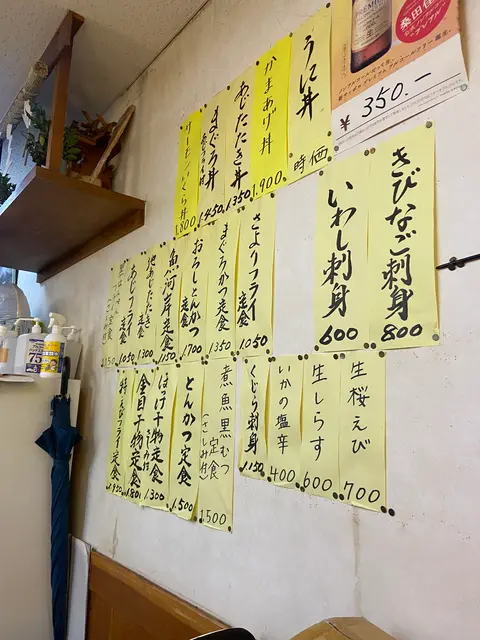 桑田佳
¥350.—
うに丼 時価
かまあげ丼 1.900
あじたたき丼 1.350
まぐろ丼 1.450
サーモンいくら丼 1.800
きびなご刺身 800
いわし刺身 600
さよりフライ定食 1050
まぐろかつ定食 1350
おろしとんかつ定食 1700
魚河岸定食 1150
地あじたたき定食 1300
あじフライ定食 1050
生桜えび 700
生しらす 600
いかの塩辛 400
くじら刺身 1.150
煮魚黒むつ定食 (さしみ付) 1500
とんかつ定食 1.500
ほっけ干物定食 1300
金目干物定食 1.800
特えびフライ定食 1.950
75